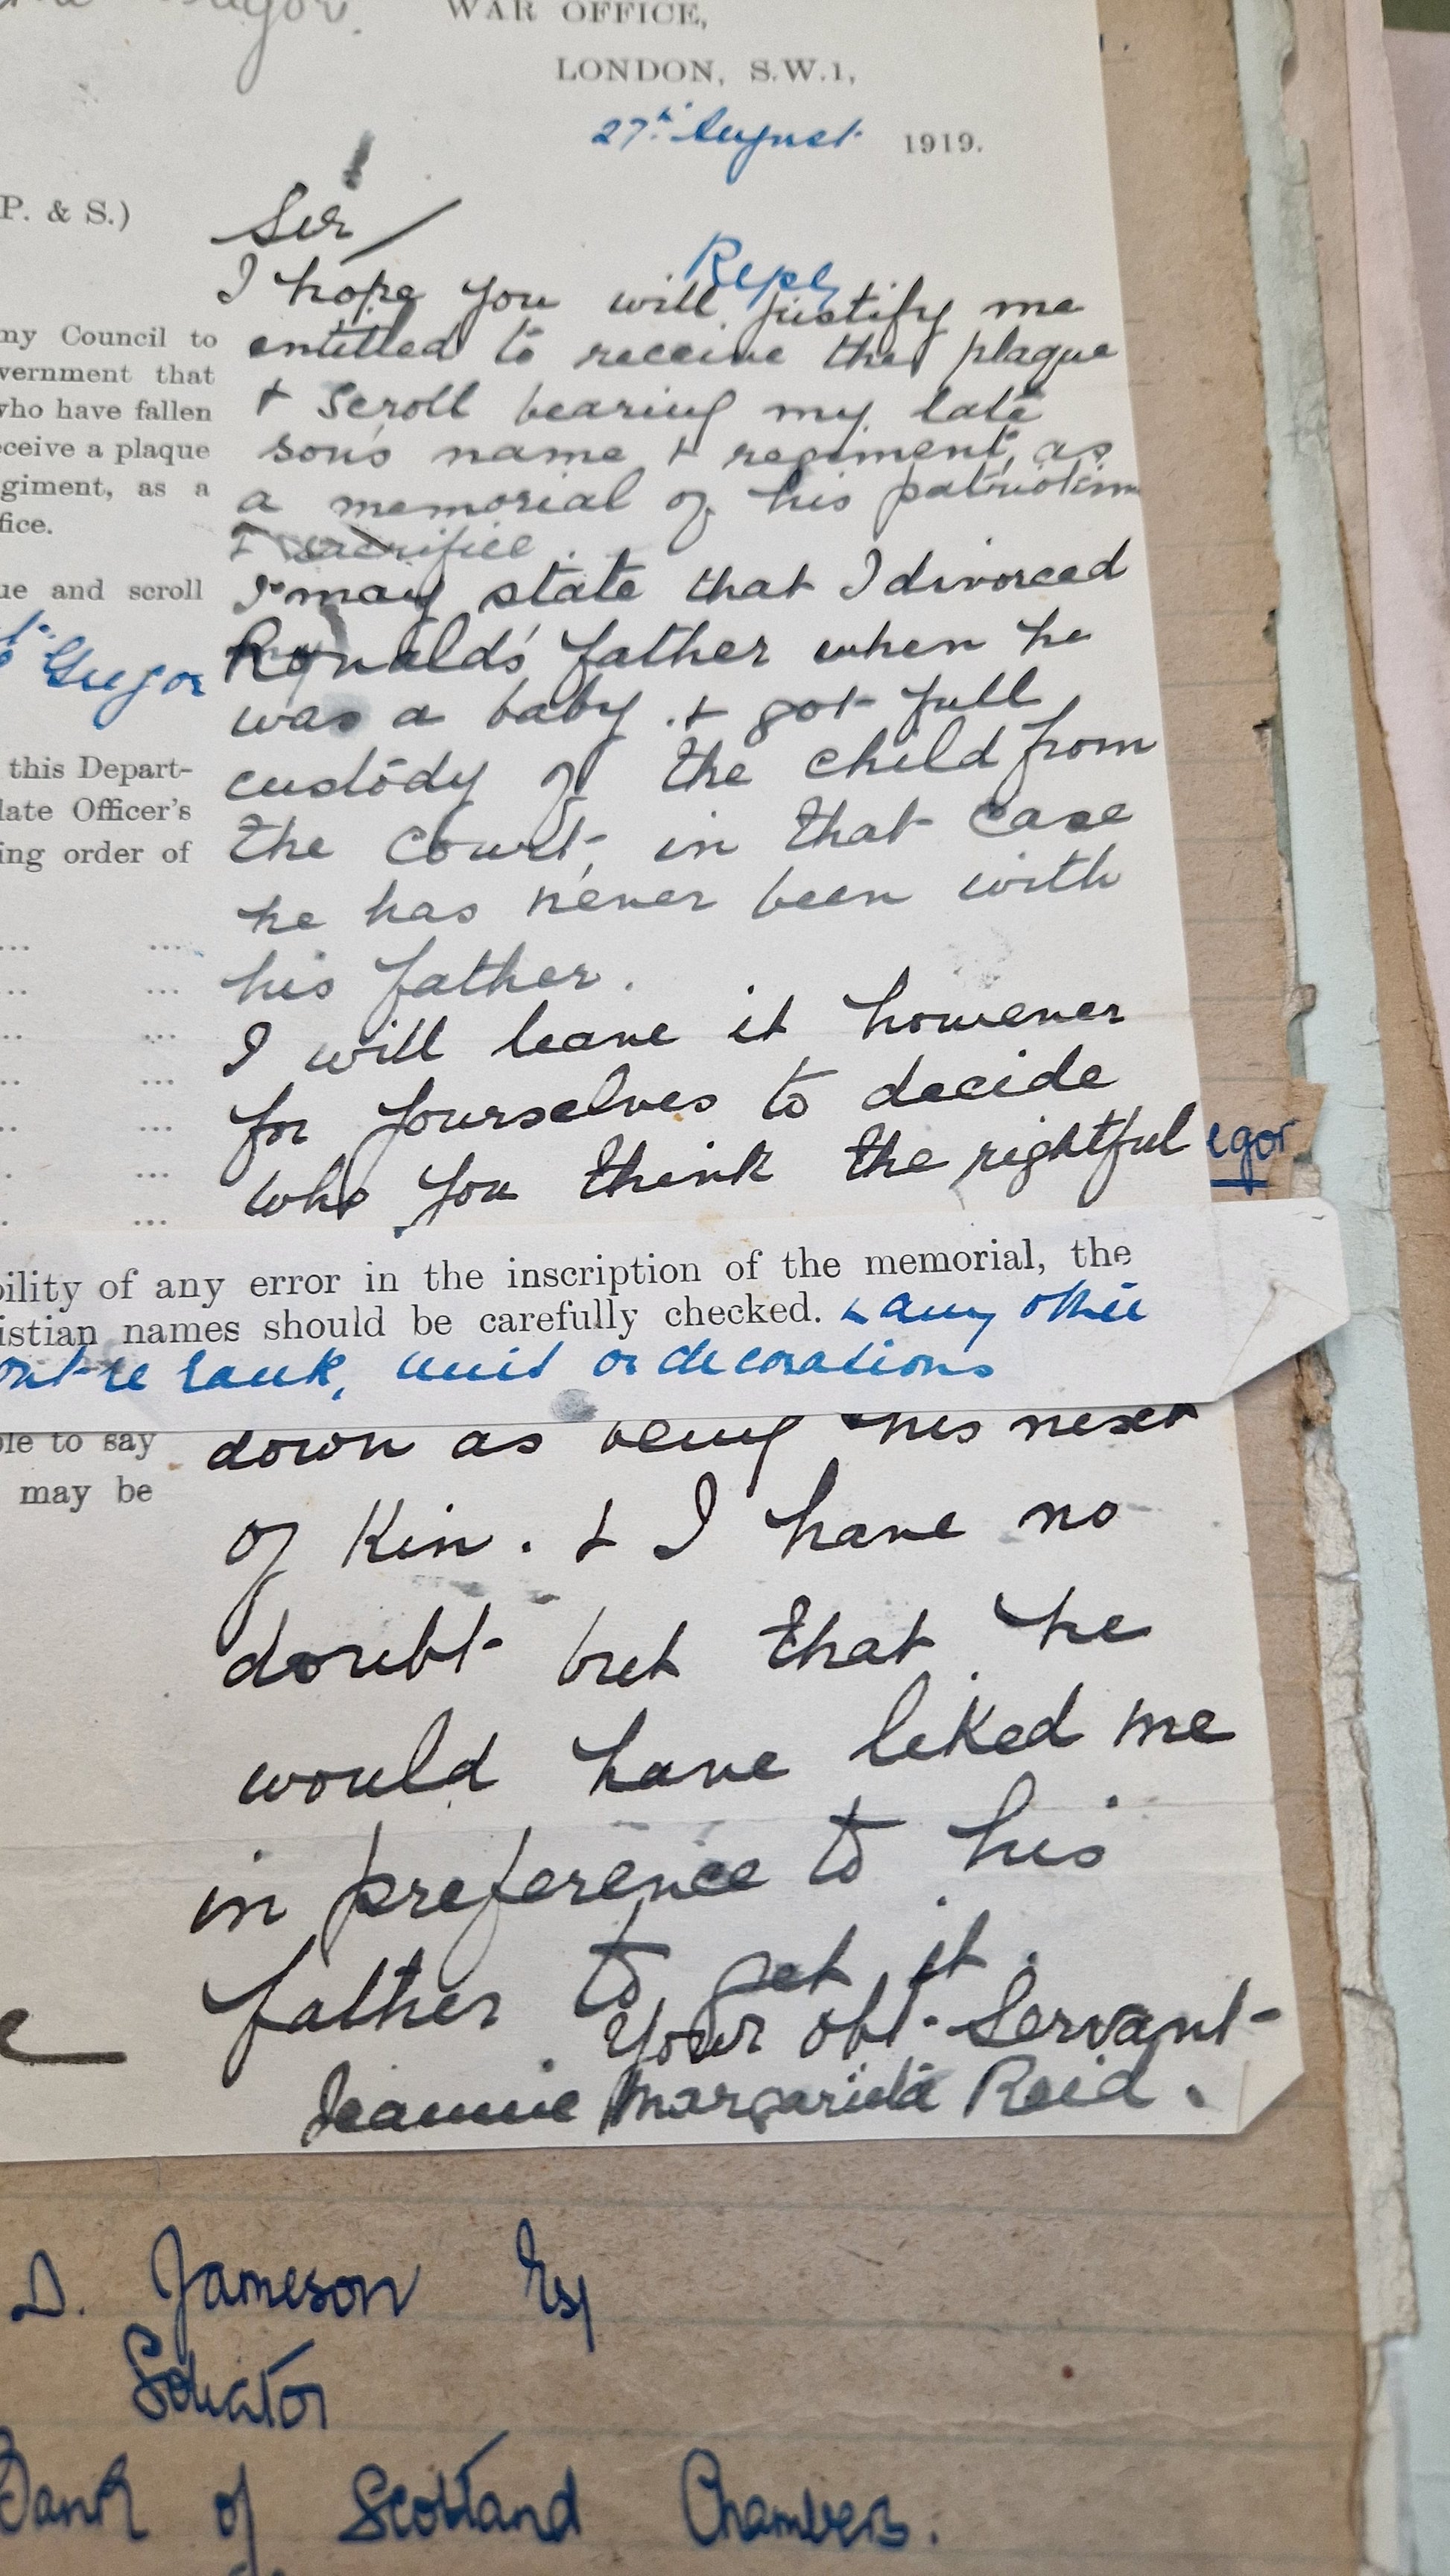 WAR OFFICE,
LONDON, S.W.1,
27th August 1919.
P. & S.)
Sir
Reply
I hope you will justify me
my Council to
entitled to receive the plaque
vernment that
+ Scroll bearing my late
who have fallen
son's name + regiment, as
eceive a plaque
a memorial of his patriotism
giment, as a
+ sacrifice
fice.
I may state that I divorced
ue and scroll
Ronald's father when he
Gregor
was a baby . + got full
custody of the child from
this Depart-
the Court, in that case
late Officer's
ing order of
he has never been with
his father.
I will leave it however
for yourselves to decide
who you think the rightful
egor
bility of any error in the inscription of the memorial, the
istian names should be carefully checked. & any other
re rank, unit or decorations
down as being his next
ble to say
of Kin. + I have no
may be
doubt but that he
would have liked me
in preference to his
father to get it.
Your obt. Servant
Jeannie Margarita Reid.
D. Jameson Esq
Solicitor
Bank of Scotland Chambers.